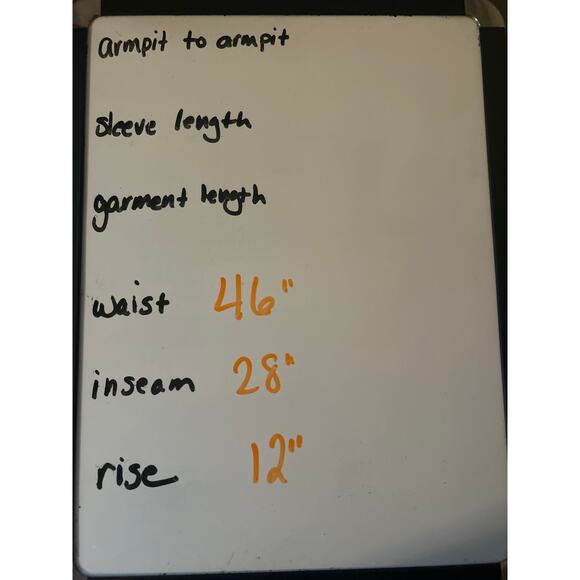 armpit to armpit
sleeve length
garment length
waist 46"
inseam 28"
rise 12"